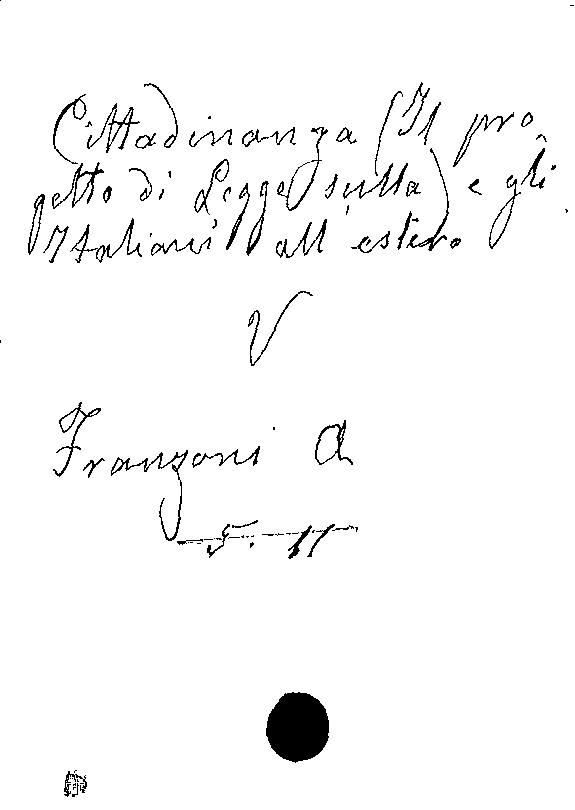 Cittadinanza (Il pro
getto di Legge sulla) e gli
Italiani all'estero
V
Franzoni A
5. 11